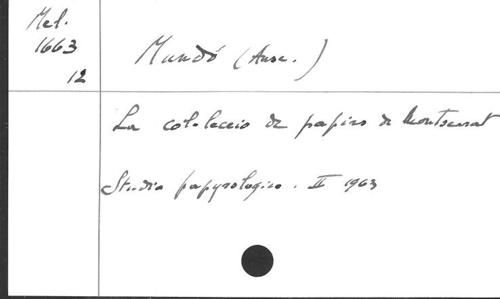 Mel.
1663
12
Mundó (Anse.)
La col·leccio de papirs de Montserrat
Studia papyrologica. II 1963